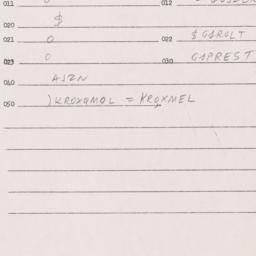 011 0 012
020 $
021 0 022 $ GAROLT
023 0 030 GAPREST
040 AJZN
050 ) KROXQMOL = KROXMEL